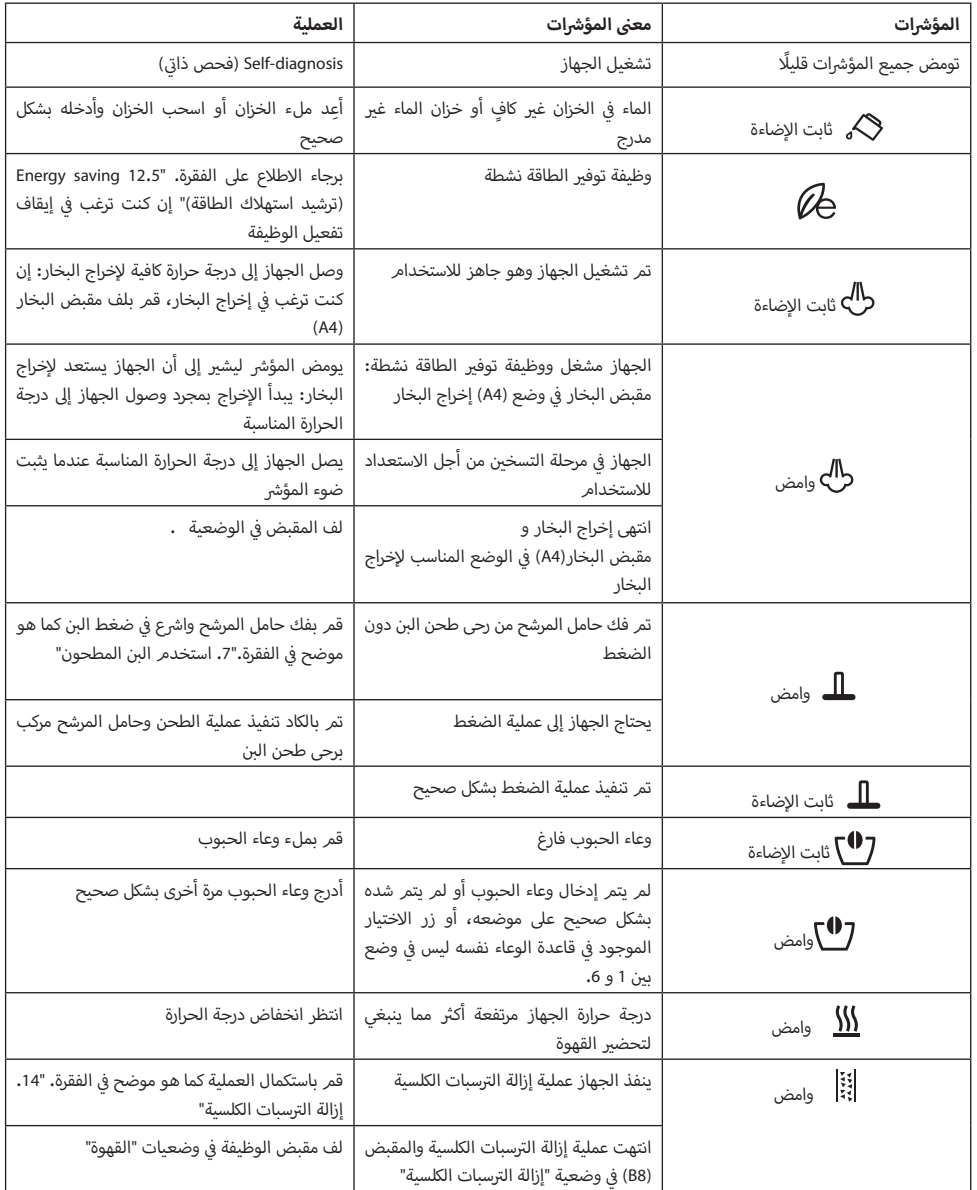 المؤشرات
معنى المؤشرات
العملية
تومض جميع المؤشرات قليلًا
تشغيل الجهاز
Self-diagnosis (فحص ذاتي)
ثابت الإضاءة
الماء في الخزان غير كافٍ أو خزان الماء غير
مدرج
أعِد ملء الخزان أو اسحب الخزان وأدخله بشكل
صحيح
وظيفة توفير الطاقة نشطة
برجاء الاطلاع على الفقرة. "12.5 Energy saving
(ترشيد استهلاك الطاقة)" إن كنت ترغب في إيقاف
تفعيل الوظيفة
ثابت الإضاءة
تم تشغيل الجهاز وهو جاهز للاستخدام
وصل الجهاز إلى درجة حرارة كافية لإخراج البخار: إن
كنت ترغب في إخراج البخار، قم بلف مقبض البخار
(A4)
وامض
الجهاز مشغل ووظيفة توفير الطاقة نشطة:
مقبض البخار في وضع (A4) إخراج البخار
يومض المؤشر ليشير إلى أن الجهاز يستعد لإخراج
البخار: يبدأ الإخراج بمجرد وصول الجهاز إلى درجة
الحرارة المناسبة
الجهاز في مرحلة التسخين من أجل الاستعداد
للاستخدام
يصل الجهاز إلى درجة الحرارة المناسبة عندما يثبت
ضوء المؤشر
انتهى إخراج البخار و
مقبض البخار(A4) في الوضع المناسب لإخراج
البخار
لف المقبض في الوضعية .
وامض
تم فك حامل المرشح من رحى طحن البن دون
الضغط
قم بفك حامل المرشح واشرع في ضغط البن كما هو
موضح في الفقرة."7. استخدم البن المطحون"
يحتاج الجهاز إلى عملية الضغط
تم بالكاد تنفيذ عملية الطحن وحامل المرشح مركب
برحى طحن البن
ثابت الإضاءة
تم تنفيذ عملية الضغط بشكل صحيح
ثابت الإضاءة
وعاء الحبوب فارغ
قم بملء وعاء الحبوب
وامض
لم يتم إدخال وعاء الحبوب أو لم يتم شده
بشكل صحيح على موضعه، أو زر الاختيار
الموجود في قاعدة الوعاء نفسه ليس في وضع
بين 1 و 6.
أدرج وعاء الحبوب مرة أخرى بشكل صحيح
وامض
درجة حرارة الجهاز مرتفعة أكثر مما ينبغي
لتحضير القهوة
انتظر انخفاض درجة الحرارة
وامض
ينفذ الجهاز عملية إزالة الترسبات الكلسية
قم باستكمال العملية كما هو موضح في الفقرة. "14.
إزالة الترسبات الكلسية"
انتهت عملية إزالة الترسبات الكلسية والمقبض
(B8) في وضعية "إزالة الترسبات الكلسية"
لف مقبض الوظيفة في وضعيات "القهوة"